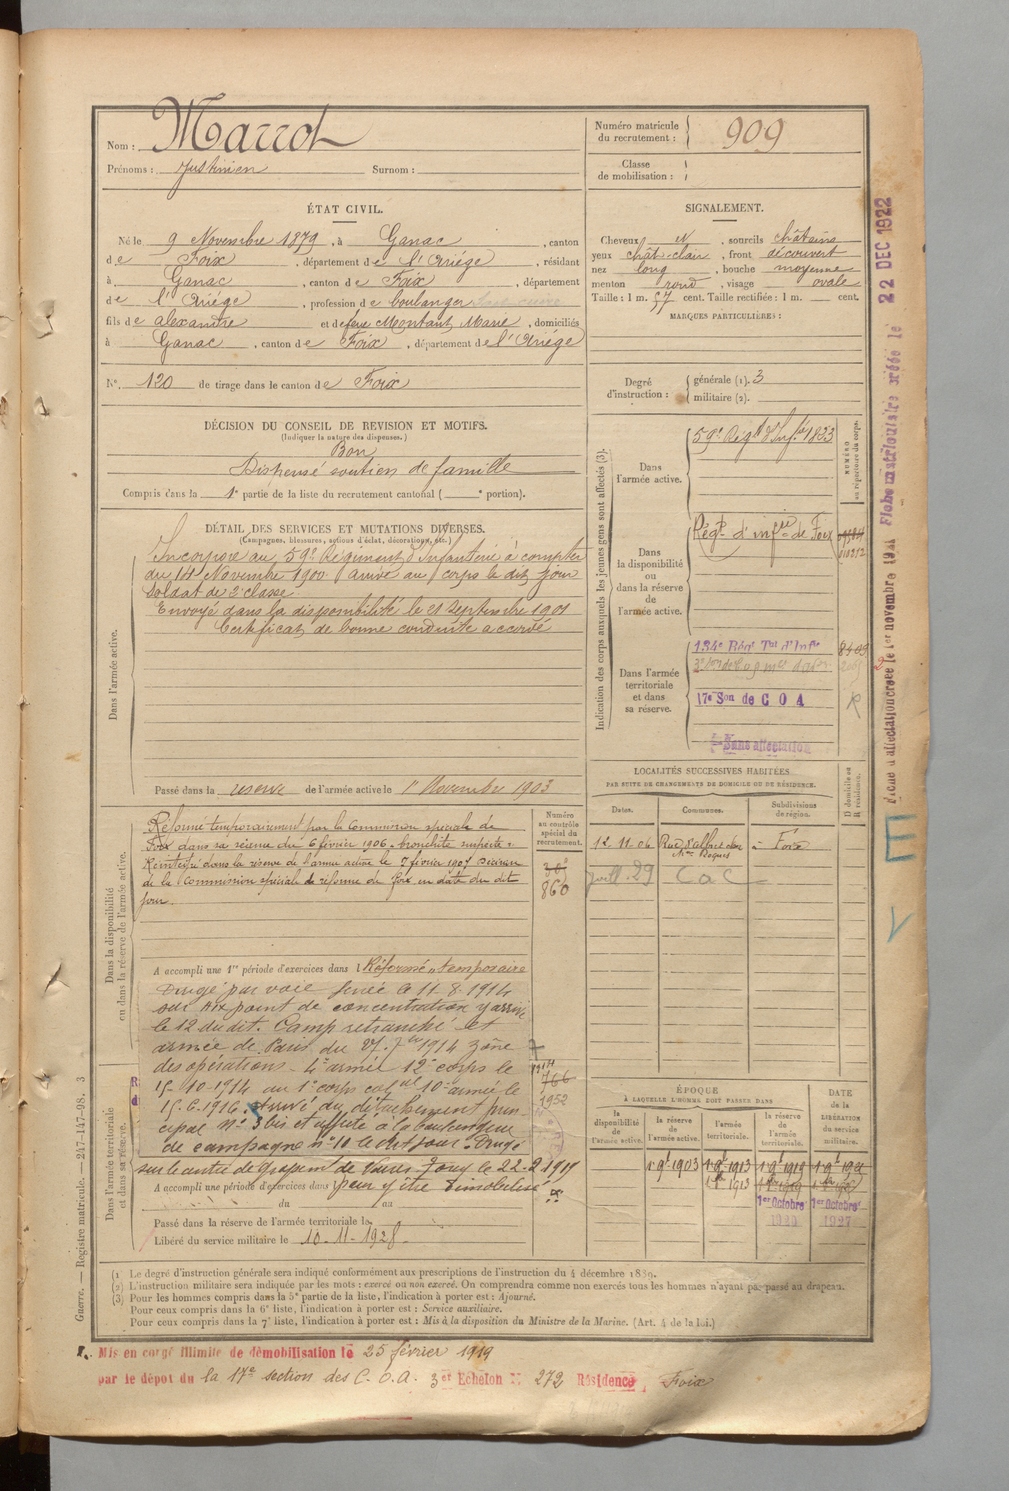 Nom : Marrot
Prénoms : Justinien Surnom :
Numéro matricule du recrutement : 909
Classe de mobilisation :
ÉTAT CIVIL.
Né le 9 Novembre 1879, à Ganac, canton
de Foix, département de l'Ariége, résidant
à Ganac, canton de Foix, département
de l'Ariége, profession de boulanger
fils de alexandre et de feue Montant Marie, domiciliés
à Ganac, canton de Foix, département de l'Ariége
N°. 120 de tirage dans le canton de Foix
SIGNALEMENT.
Cheveux N, sourcils châtains
yeux chât-clair, front découvert
nez long, bouche moyenne
menton rond, visage ovale
Taille : 1 m. 57 cent. Taille rectifiée : 1 m. cent.
MARQUES PARTICULIÈRES :
Degré d'instruction : générale (1). 3
militaire (2).
DÉCISION DU CONSEIL DE REVISION ET MOTIFS.
(Indiquer la nature des dispenses.)
Bon
Dispensé soutien de famille
Compris dans la 1e partie de la liste du recrutement cantonal ( e portion).
DÉTAIL DES SERVICES ET MUTATIONS DIVERSES.
(Campagnes, blessures, actions d'éclat, décorations, etc.)
Dans l'armée active.
Incorporé au 59e Régiment d'Infanterie à compter
du 14 Novembre 1900 arrivé au corps le dit jour
soldat de 2e classe
Envoyé dans la disponibilité le 21 septembre 1901
Certificat de bonne conduite accordé
Passé dans la reserve de l'armée active le 1er Novembre 1903
Indication des corps auxquels les jeunes gens sont affectés (3).
NUMÉRO au répertoire du corps.
Dans l'armée active.
59e Régt d'Inf.ie 1823
Dans la disponibilité ou dans la réserve de l'armée active.
Régt d'infie de Foix
Dans l'armée territoriale et dans sa réserve.
134e Régt Tal d'Infie
17e Son de C O A
Sans affectation
LOCALITÉS SUCCESSIVES HABITÉES
PAR SUITE DE CHANGEMENTS DE DOMICILE OU DE RÉSIDENCE.
Dates. Communes. Subdivisions de région. D domicile ou R résidence.
12.11.06 Foix
29 CaC
Dans la disponibilité ou dans la réserve de l'armée active.
Numéro au contrôle spécial du recrutement.
860
Réformé temporairement par la Commission spéciale de
Foix dans sa séance du 6 février 1906 "bronchite suspecte".
Réintégré dans la réserve de l'armée active le 7 février 1907 Décision
de la Commission spéciale de réforme de Foix en date du dit
jour.
A accompli une 1re période d'exercices dans l Réformé temporaire
Dirigé par voie ferrée le 11.8.1914
sur Aix point de concentration y arrivé
le 12 du dit. Camp retranché et
armée de Paris du 27.7re 1914 zône
des opérations - 4e armée 12e corps le
15-10-1914 au 1e corps cal 10e armée le
15.6.1916. arrivé du détachement prin-
cipal n° 3 bis et affecté à la boulangerie
de campagne n° 10 le dit jour. Dirigé
sur le centre de groupement de le 22-2 1919
pour y être démobilisé
Dans l'armée territoriale et dans sa réserve.
1914
766
1952
A accompli une période d'exercices dans l
du au
Passé dans la réserve de l'armée territoriale le
Libéré du service militaire le 10-11-1928.
ÉPOQUE
A LAQUELLE L'HOMME DOIT PASSER DANS
la disponibilité de l'armée active. la réserve de l'armée active. l'armée territoriale. la réserve de l'armée territoriale. DATE de la LIBÉRATION du service militaire.
1 9bre 1903 1 9bre 1913 1 9bre 1919
1er Octobre 1er Octobre
1927
(1 Le degré d'instruction générale sera indiqué conformément aux prescriptions de l'instruction du 4 décembre 1889.
(2) L'instruction militaire sera indiquée par les mots : exercé ou non exercé. On comprendra comme non exercés tous les hommes n'ayant pas passé au drapeau.
(3) Pour les hommes compris dans la 5e partie de la liste, l'indication à porter est : Ajourné.
Pour ceux compris dans la 6e liste, l'indication à porter est : Service auxiliaire.
Pour ceux compris dans la 7e liste, l'indication à porter est : Mis à la disposition du Ministre de la Marine. (Art. 4 de la loi.)
Mis en congé illimité de démobilisation le 25 février 1919
par le dépot du la 17e section des C.O.A. 3e Echelon N 272 Résidence Foix
Guerre. — Registre matricule. — 247-147-98. 3
Fiche matriculaire créée le 22 DEC 1922
Fiche d'affectation créée le 1er novembre